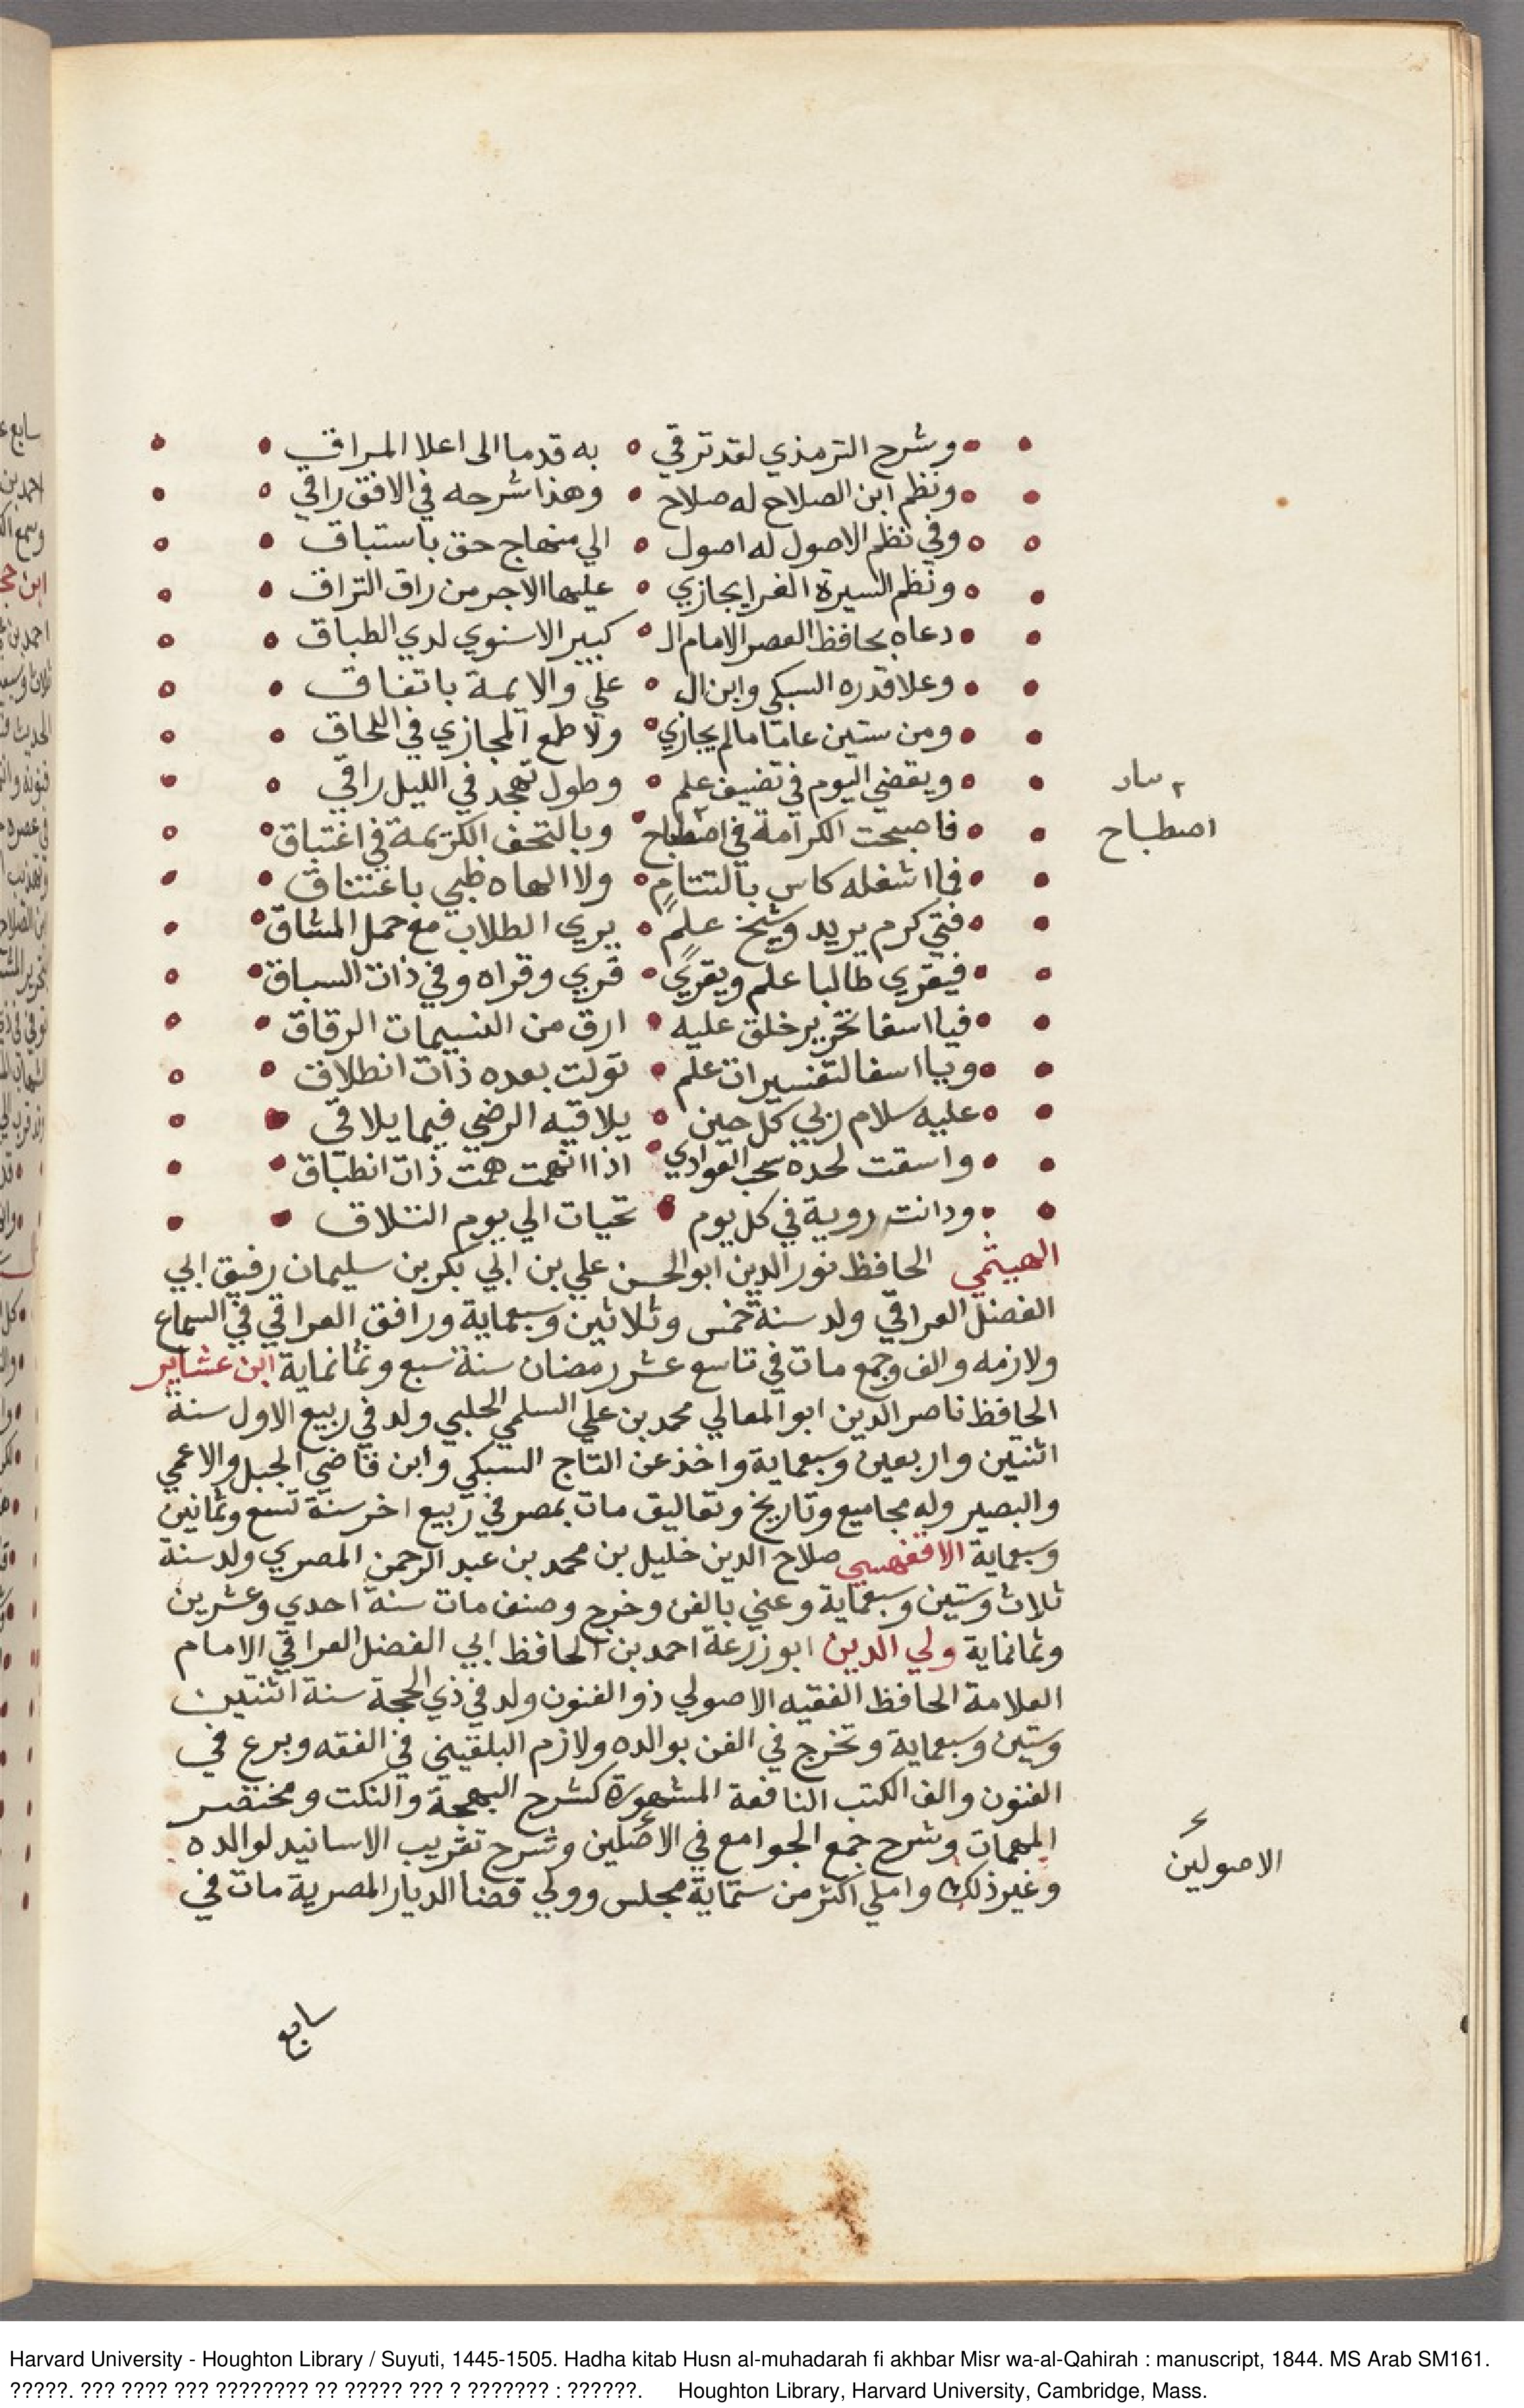 وشرح الترمذي لقد ترقي به قدما الى اعلا المراقي
ونظم ابن الصلاح له صلاح وهذا شرحه في الافق راقي
وفي نظم الاصول له اصول الي منهاج حق باستباق
ونظم السيرة الغرا يجازي عليها الاجر من راق التراق
دعاه بحافظ العصر الامام ال كبير الاسنوي لدي الطباق
وعلا قدره السبكي وابن ال علي والايمة باتفاق
ومن ستين عاما مالم يجازي ولا طمع المجازي في اللحاق
ويقضي اليوم في تضيف علم وطول تهجد في الليل راقي
فاصبحت الكرامة في اصطباح وبالتحف الكريمة في اغتباق
فما اشغله كاس بالتتام ولا الهاه ظبي باعتناق
فتي كرم يريد وشيخ علم يري الطلاب مع حمل المشاق
فيقري طالبا علم ويقري قري وقراه وفي ذات السباق
فيا اسفا نحرير خلق عليه ارق من النسيمات الرقاق
ويا اسفا لتفسيرات علم تولت بعده ذات انطلاق
عليه سلام ربي كل حين يلاقيه الرضي فيما يلاقي
واسقت لحده سحب الغوادي اذا انهمت همت ذات انطباق
ودانت روية في كل يوم تحيات الي يوم التلاق
الهيثمي الحافظ نور الدين ابو الحسن علي بن ابي بكر بن سليمان رفيق ابي
الفضل العراقي ولد سنة خمس وثلاثين وسبعماية ورافق العراقي في السماع
ولازمه والف وجمع مات في تاسع عشر رمضان سنة سبع وثمانماية ابن عشاير
الحافظ ناصر الدين ابو المعالي محمد بن علي السلمي الحلبي ولد في ربيع الاول سنة
اثنين واربعين وسبعماية واخذ عن التاج السبكي وابن قاضي الجبل والاعمي
والبصير وله مجاميع وتاريخ وتعاليق مات بمصر في ربيع اخر سنة تسع وثمانين
وسبعماية الاقفهسي صلاح الدين خليل بن محمد بن عبد الرحمن المصري ولد سنة
ثلاث وستين وسبعماية وعني بالفن وخرج وصنف مات سنة احدي وعشرين
وثمانماية ولي الدين ابو زرعة احمد بن الحافظ ابي الفضل العراقي الامام
العلامة الحافظ الفقيه الاصولي ذو الفنون ولد في ذي الحجة سنة اثنتين
وستين وسبعماية وتخرج في الفن بوالده ولازم البلقيني في الفقه وبرع في
الفنون والف الكتب النافعة المشهورة كشرح البهجة والنكت ومختصر
المهمات وشرح جمع الجوامع في الاصلين وشرح تقريب الاسانيد لوالده
وغير ذلك واملي اكثر من ستماية مجلس وولي قضا الديار المصرية مات في
سابع
اصطباح
الاصولين
Harvard University - Houghton Library / Suyuti, 1445-1505. Hadha kitab Husn al-muhadarah fi akhbar Misr wa-al-Qahirah : manuscript, 1844. MS Arab SM161.
?????. ??? ???? ??? ???????? ?? ????? ??? ? ??????? : ??????. Houghton Library, Harvard University, Cambridge, Mass.